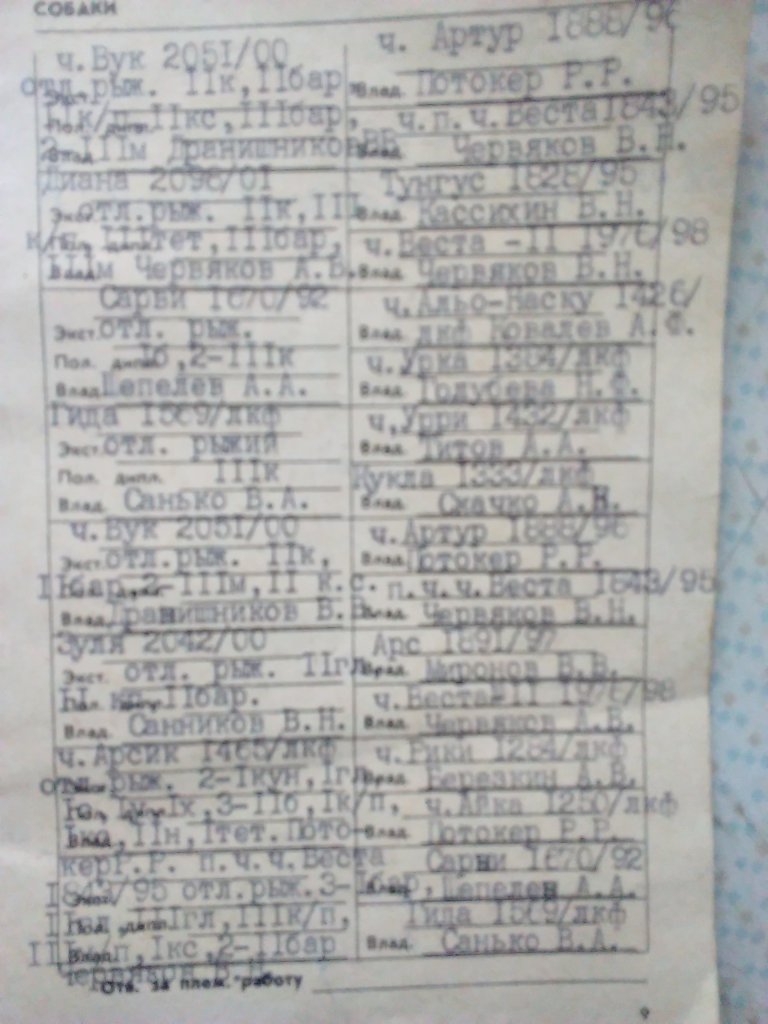 СОБАКИ
ч.Вук 2051/00
отл.рыж. IIк,IIбар
IIк/п,IIкс,IIIбар,
2-IIIм Дранишников ВВ
Диана 2098/01
Экст. отл.рыж. IIк,III
к/п IIIтет,IIIбар,
IIIм Червяков А.В.
Сарби 1670/92
Экст. отл. рыж.
Пол. дипл. Iб,2-IIIк
Влад. Шепелев А.А.
Гида 1569/лкф
Экст. отл. рыжий
Пол. дипл. IIIк
Влад. Санько В.А.
ч.Вук 2051/00
Экст. отл.рыж. IIк,
IIбар,2-IIIм,II к.с.
Влад. Дранишников В.В.
Зуля 2042/00
Экст. отл. рыж. IIгл
IIбар.
Влад. Санников В.Н.
ч.Арсик 1465/лкф
отл.рыж. 2-Iкун,Iгл
Iх,3-IIб,Iк/п,
IIн,Iтет.Пото-
кер Р.Р. п.ч.ч.Веста
1843/95 отл.рыж.3-Iбар,
IIгл,IIIк/п,
IIк/п,Iкс,2-IIбар
Червяков В.Н.
ч. Артур 1888/96
Влад. Потокер Р.Р.
ч.п.ч.Веста 1843/95
Червяков В.Н.
Тунгус 1828/95
Влад. Кассихин В.Н.
ч.Веста -II 1976/98
Влад. Червяков В.Н.
ч.Альо-Наску 1426/
Влад. лкф Ковалев А.Ф.
ч.Урка 1384/лкф
Влад. Голубева Н.Ф.
ч.Урри 1432/лкф
Влад. Титов А.А.
Кукла 1333/лкф
Влад. Скачко А.Н.
ч.Артур 1888/96
Влад. Потокер Р.Р.
п.ч.ч.Веста 1843/95
Влад. Червяков В.Н.
Арс 1891/97
Влад. Миронов В.В.
ч.Веста-II 1976/98
Влад. Червяков А.В.
ч.Рики 1284/лкф
Влад. Березкин А.В.
ч.Айка 1250/лкф
Влад. Потокер Р.Р.
Сарни 1670/92
Влад. Шепелев А.А.
Гида 1569/лкф
Влад. Санько В.А.
Отв. за плем. работу
9